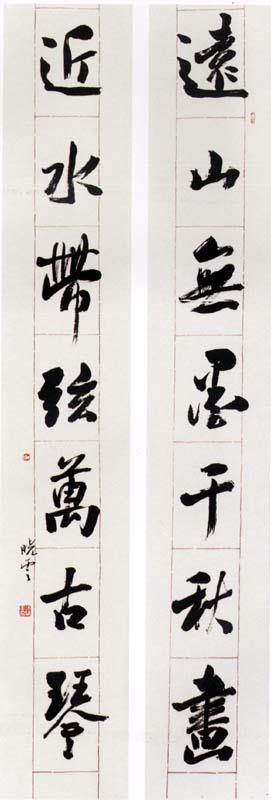 遠山無墨千秋畫
近水帶弦萬古琴
晓雲